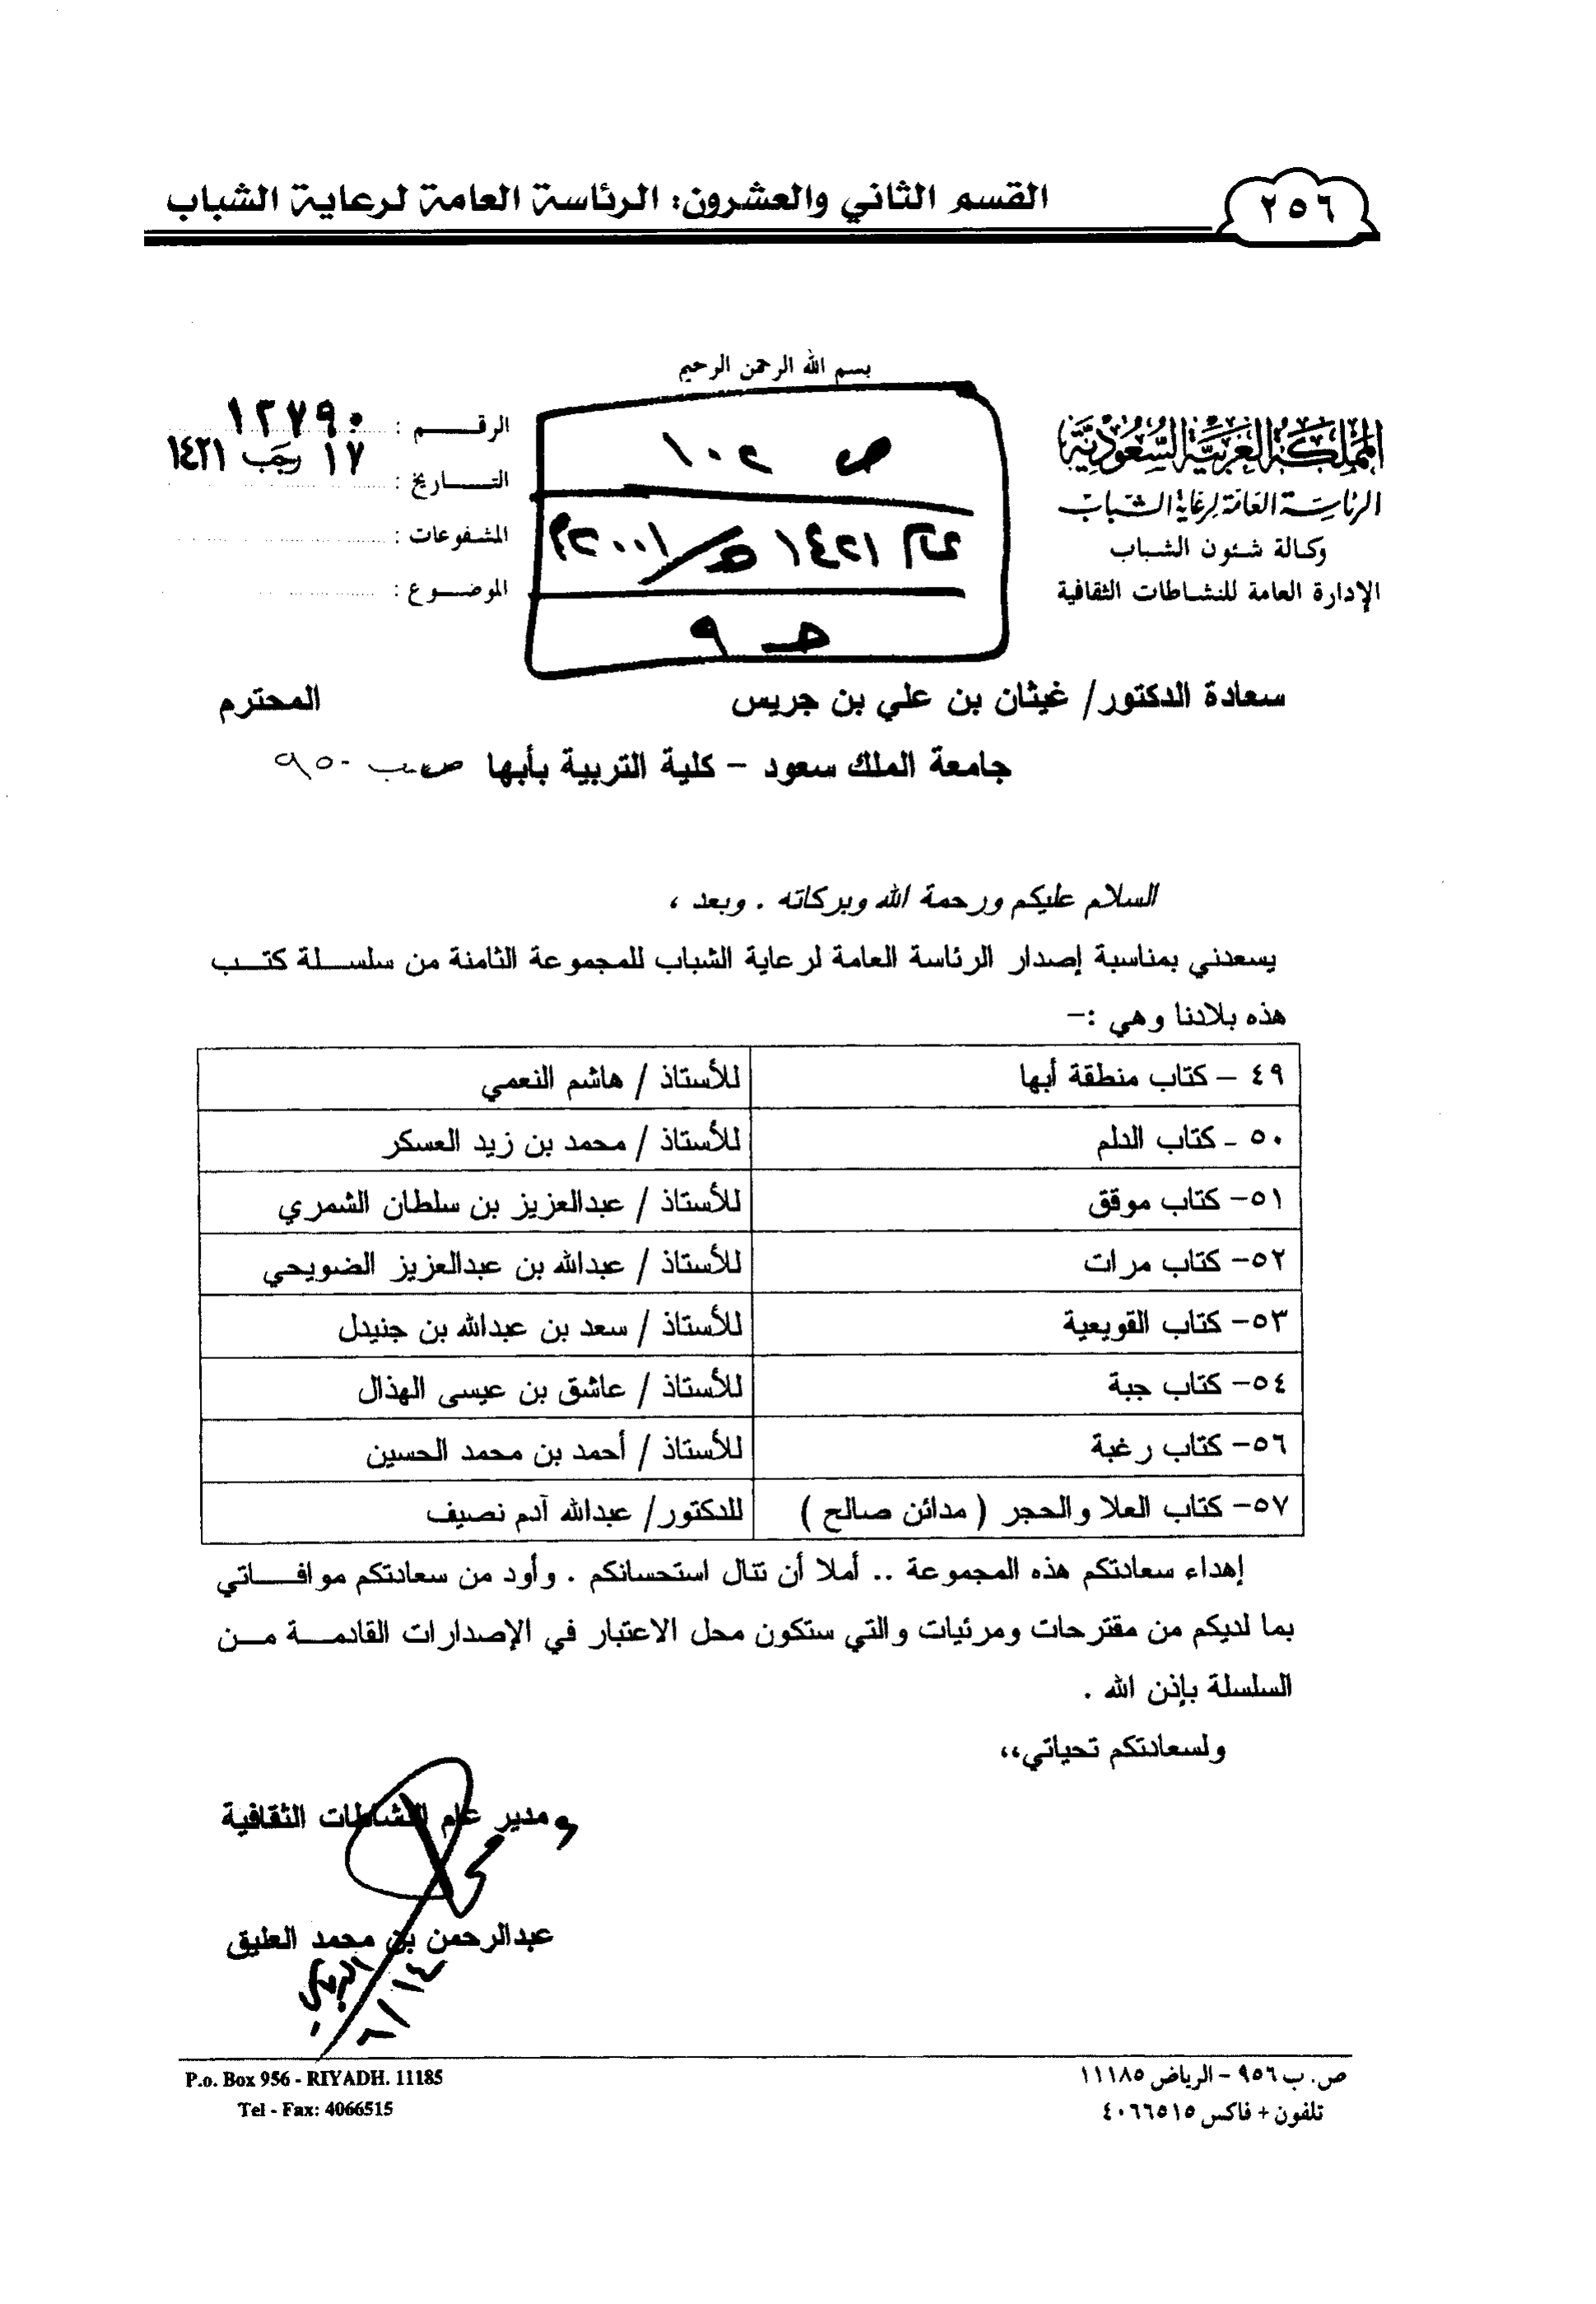 ٢٥٦
القسم الثاني والعشرون: الرئاسة العامة لرعاية الشباب
بسم الله الرحمن الرحيم
المملكة العربية السعودية
الرئاسة العامة لرعاية الشباب
وكالة شئون الشباب
الإدارة العامة للنشاطات الثقافية
ص ١٠٢
١٤٢١هـ/٢٠٠١م
الرقــم : ١٢٧٩٠
التــاريخ : ١٧ رجب ١٤٢١
المشفوعات :
الموضوع :
سعادة الدكتور/ غيثان بن علي بن جريس المحترم
جامعة الملك سعود – كلية التربية بأبها ص.ب ٩٥٠
السلام عليكم ورحمة الله وبركاته . وبعد ،
يسعدني بمناسبة إصدار الرئاسة العامة لرعاية الشباب للمجموعة الثامنة من سلسلة كتب
هذه بلادنا وهي :–
٤٩ – كتاب منطقة أبها للأستاذ / هاشم النعمي
٥٠ - كتاب الدلم للأستاذ / محمد بن زيد العسكر
٥١– كتاب موقق للأستاذ / عبدالعزيز بن سلطان الشمري
٥٢– كتاب مرات للأستاذ / عبدالله بن عبدالعزيز الضويحي
٥٣– كتاب القويعية للأستاذ / سعد بن عبدالله بن جنيدل
٥٤– كتاب جبة للأستاذ / عاشق بن عيسى الهذال
٥٦– كتاب رغبة للأستاذ / أحمد بن محمد الحسين
٥٧– كتاب العلا والحجر ( مدائن صالح ) للدكتور/ عبدالله آدم نصيف
إهداء سعادتكم هذه المجموعة .. أملا أن تنال استحسانكم . وأود من سعادتكم موافـــاتي
بما لديكم من مقترحات ومرئيات والتي ستكون محل الاعتبار في الإصدارات القادمـــة مـــن
السلسلة بإذن الله .
ولسعادتكم تحياتي،،
مدير عام النشاطات الثقافية
عبدالرحمن بن محمد العليق
ص. ب ٩٥٦ – الرياض ١١١٨٥
تلفون + فاكس ٤٠٦٦٥١٥
P.o. Box 956 - RIYADH. 11185
Tel - Fax: 4066515